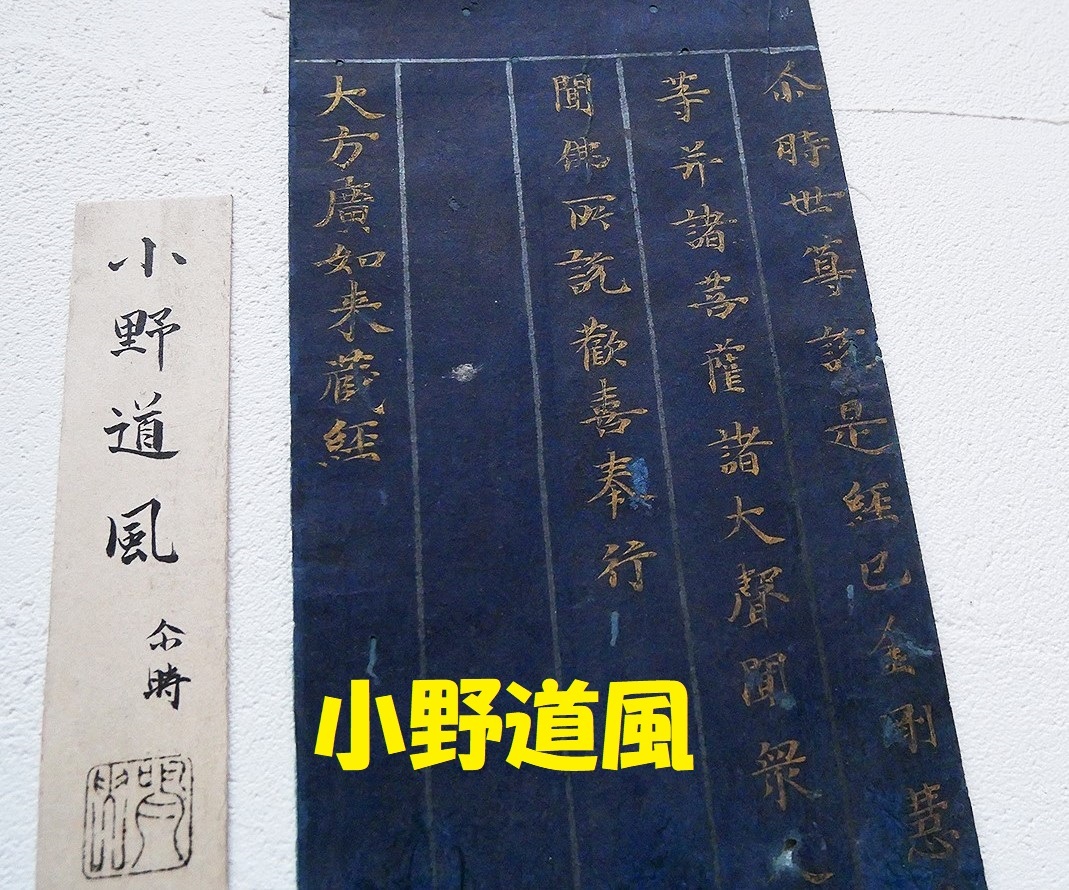 尒時世尊說是經已金剛慧
等并諸菩薩諸大聲聞衆人
聞佛所說歡喜奉行
大方廣如来藏經
小野道風
尒時
小野道風